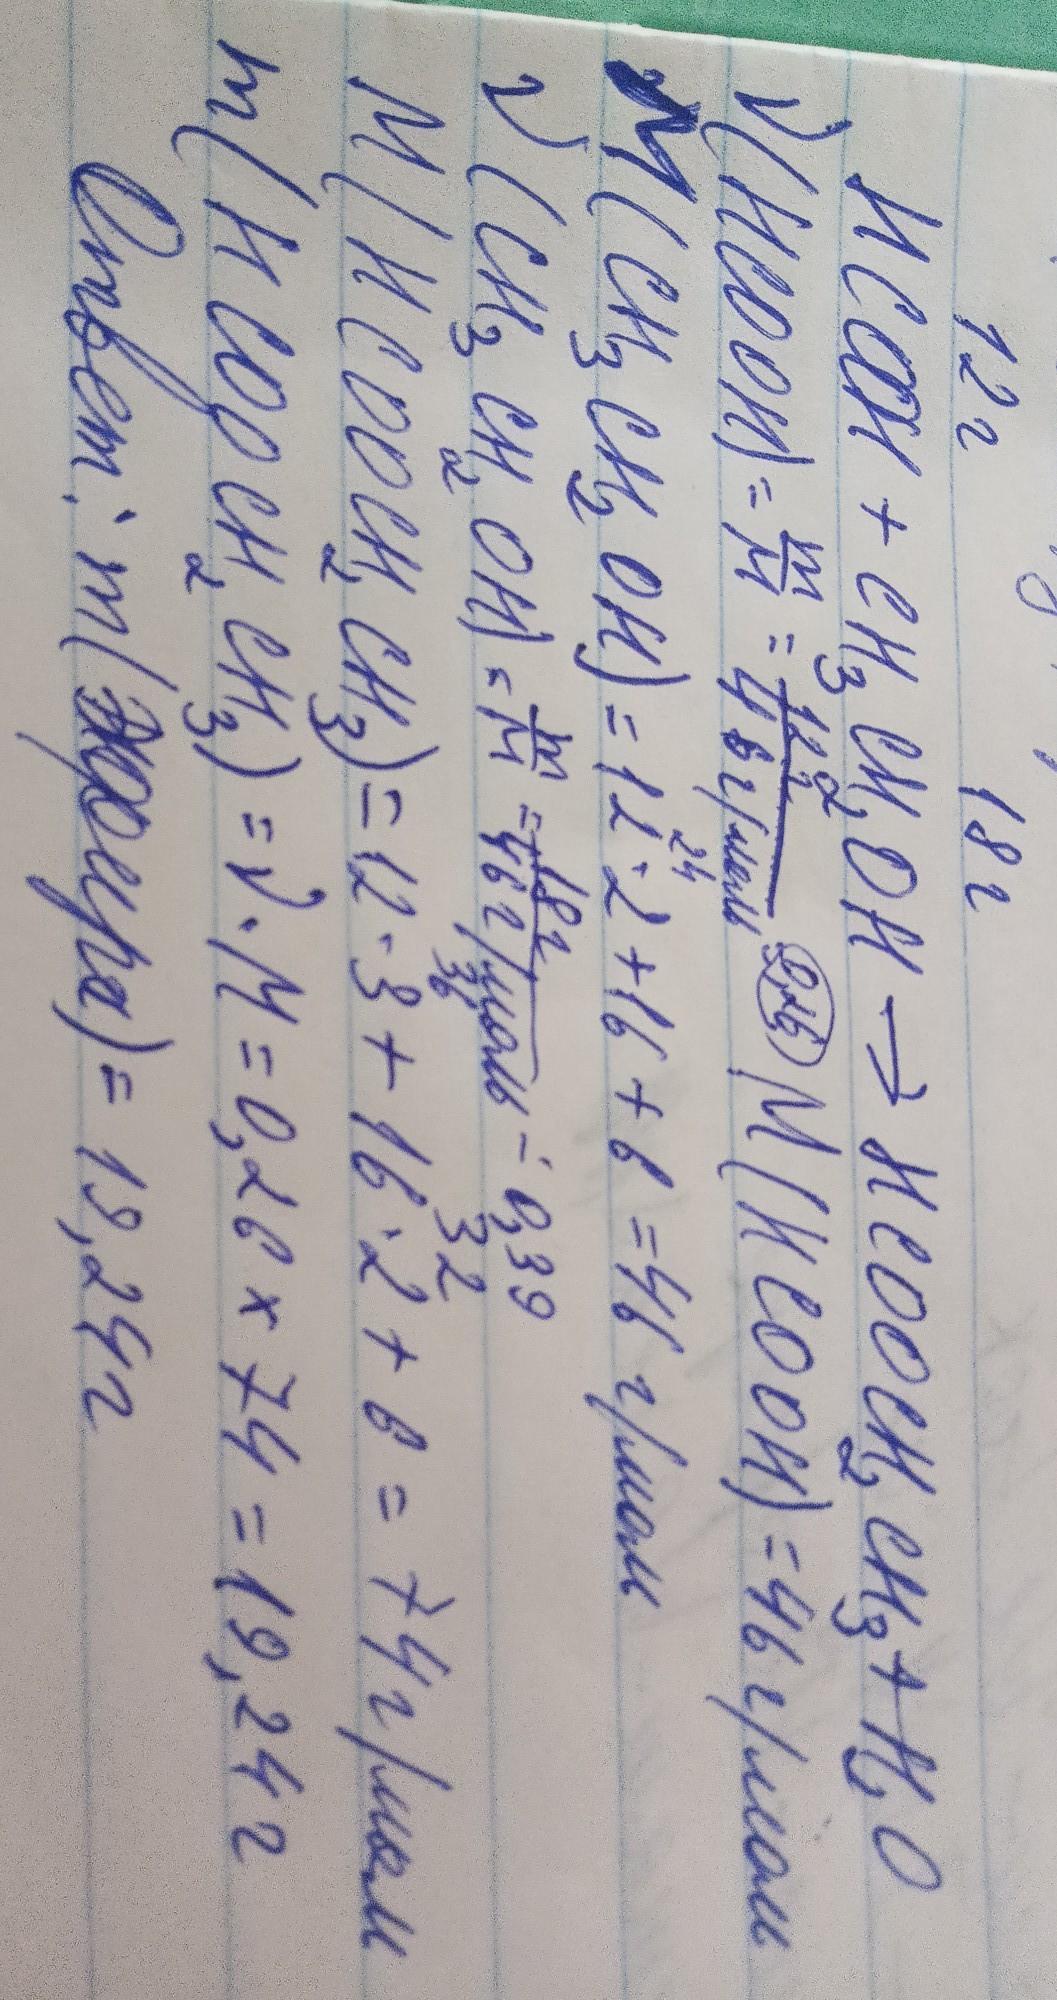 12г 18г
HCOOH + CH3CH2OH → HCOOCH2CH3 + H2O
ν(HCOOH) = m/M = 12г/46г/моль 0,26 M(HCOOH) = 46г/моль
M(CH3CH2OH) = 12·2 + 16 + 6 = 46 г/моль
24
ν(CH3CH2OH) = m/M = 18г/46г/моль = 0,39
M(HCOOCH2CH3) = 12·3 + 16·2 + 6 = 74г/моль
36 32
m(HCOOCH2CH3) = ν·M = 0,26 x 74 = 19,24г
Ответ: m(эфира) = 19,24г